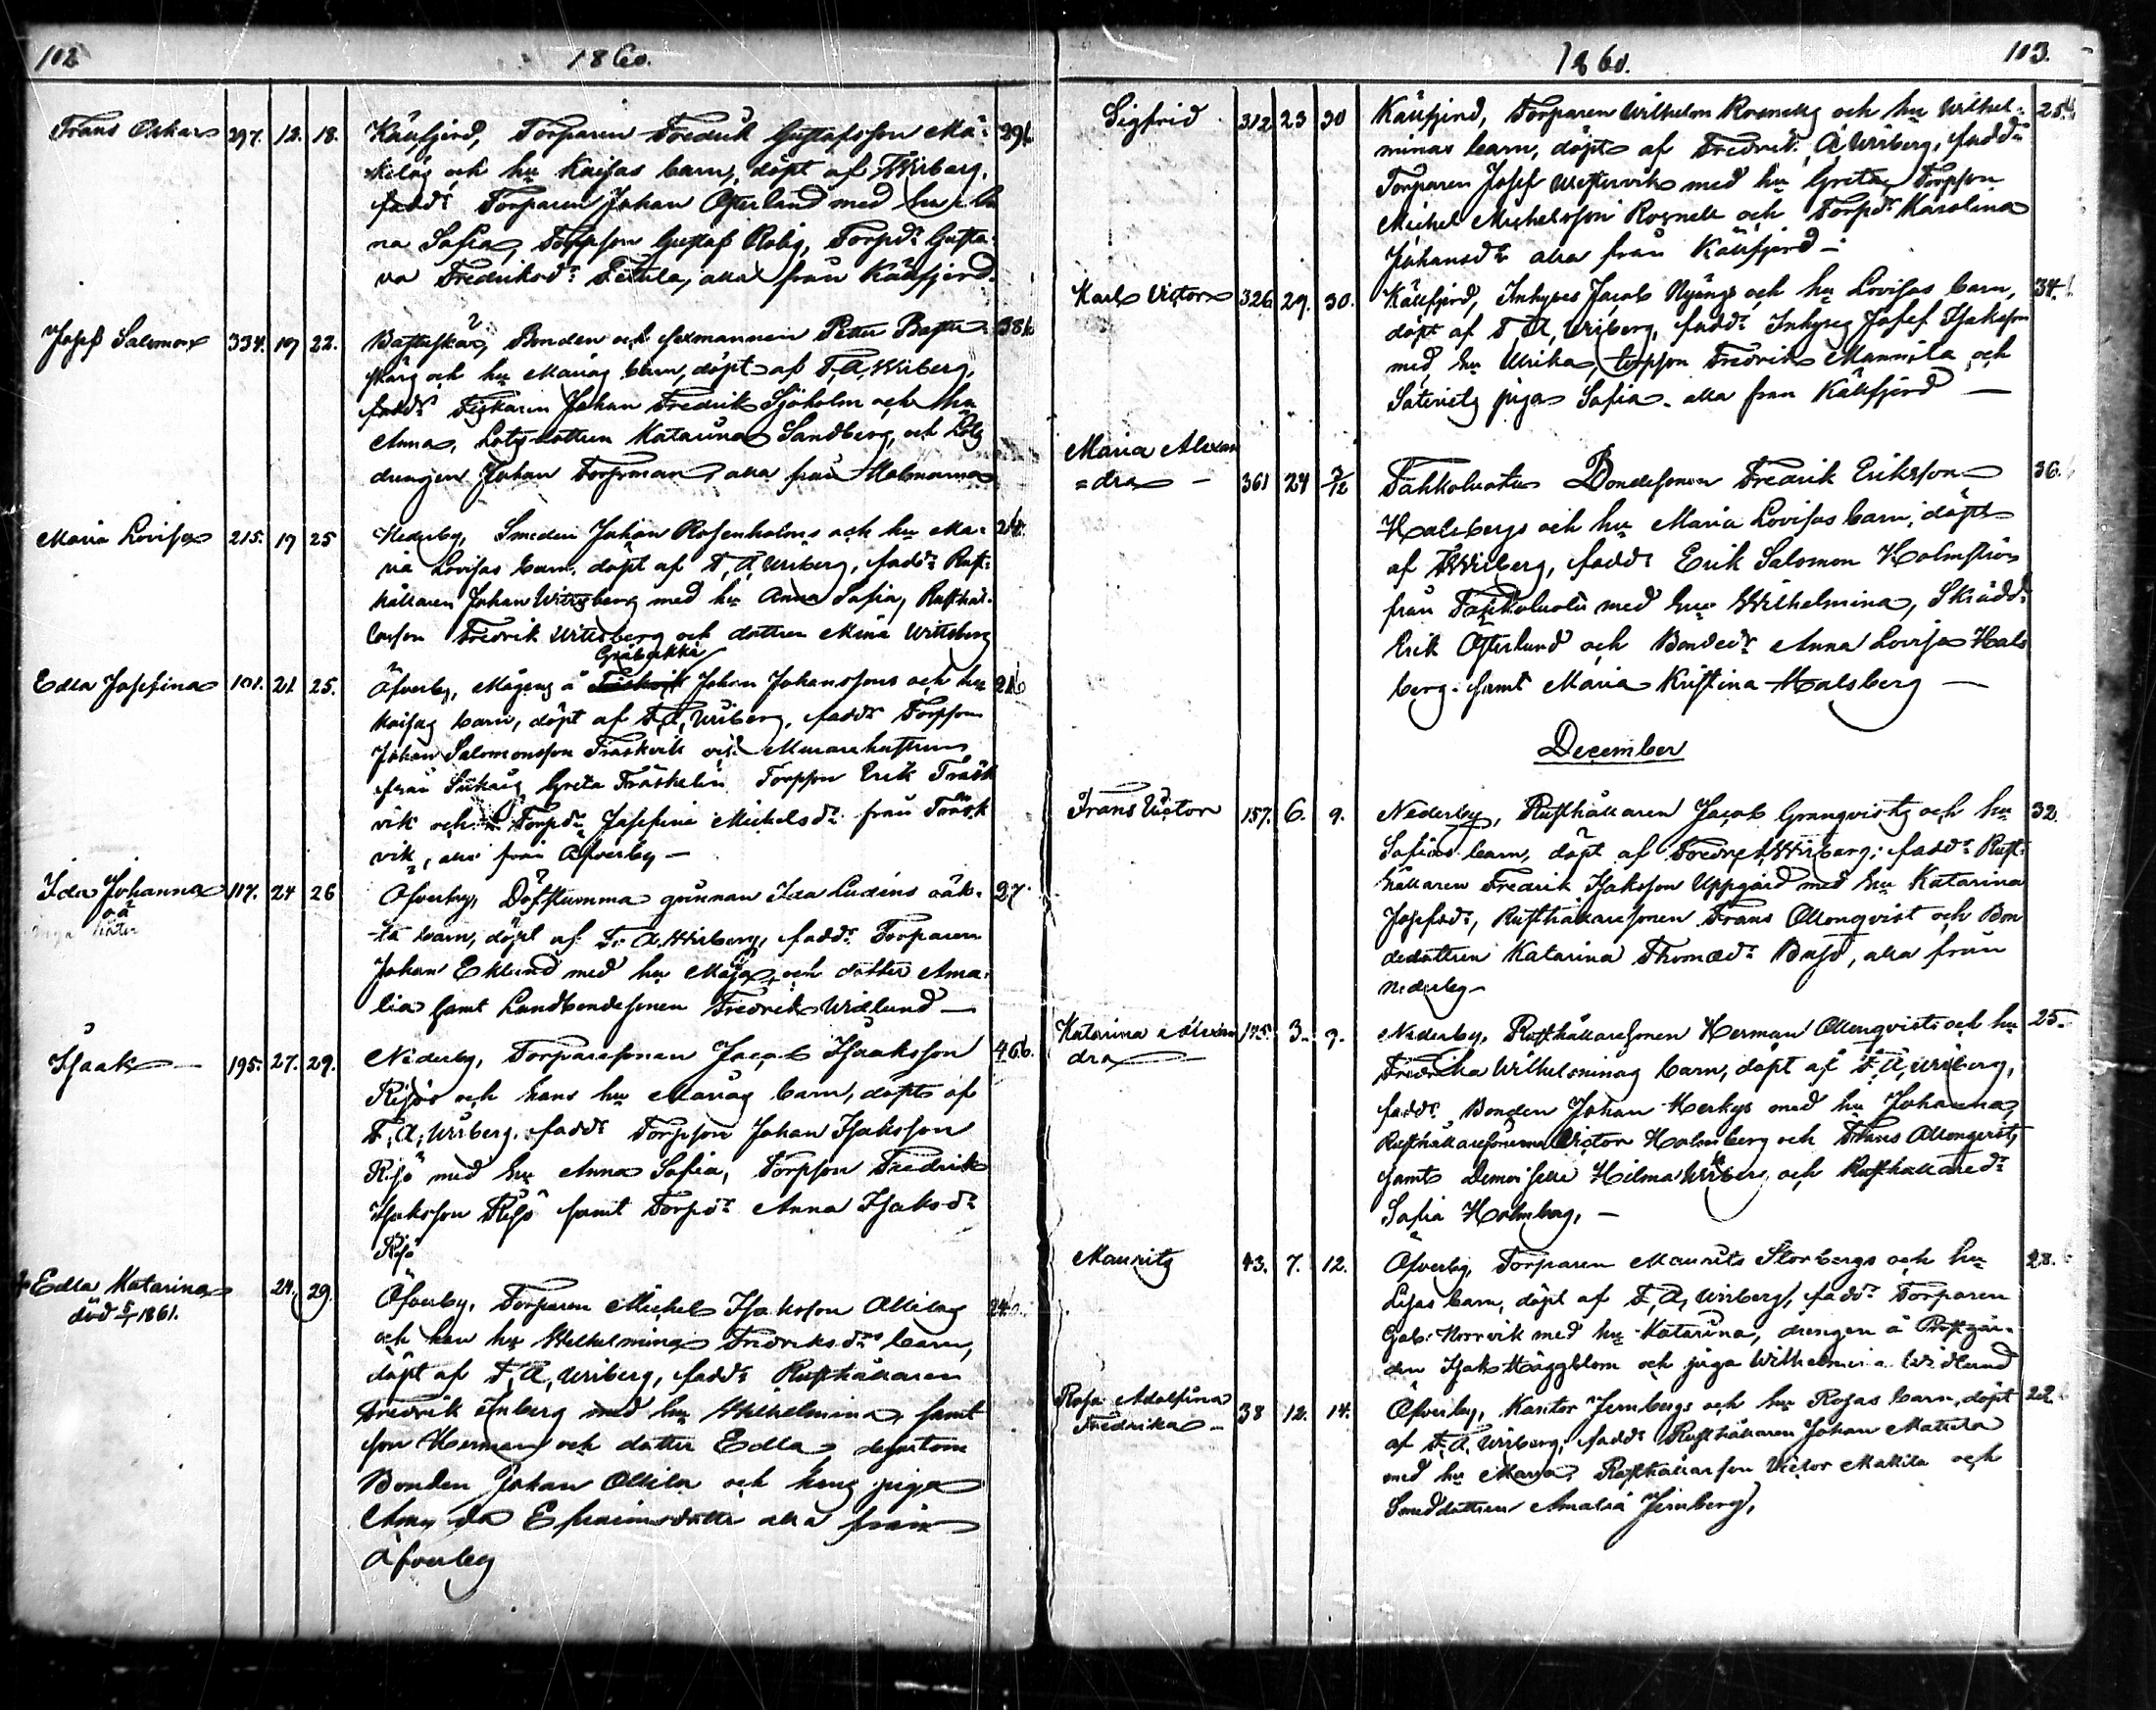 102 1860.
Frans Oskar 297. 12. 18. Källfjerd, Torparen Fredrik Gustafsson Mä- 39
kiläs och hu Kaisas barn, döpt af Wiberg,
fadd: Torparen Johan Österlund med hu
na Sofia, Torpson Gustaf Rolig, Torpd: Gusta-
va Fredriksd: alla från Källfjerd.
Josef Salomon 334. 19 22. Bonden och sexmannen Petter 38
och hu Marias barn, döpt af F, A, Wiberg,
fadd: Fiskaren Johan Fredrik Sjöholm och hu
Anna, Lots dottren Katarina Sandberg, och Lots
drengen Johan alla från Holmarna
Maria Lovisa 215. 19 25 Nederby, Smeden Johan Rosenholms och hu Ma- 24.
ria Lovisas barn, döpt af F, A, Wiberg, fadd: Rust-
hållaren Johan Wittsberg med hu Anna Sofia, Rusthål-
larson Fredrik Wittsberg och dottren Mina Wittsberg
Gråbackka
Edla Josefina 101. 21 25. Öfverby, Mågens å Johan Johanssons och hu 21
Kaisas barn, döpt af F, A, Wiberg, fadd: Torpson
Johan Salomonsson Träskvik och Murarehustrun
från Greta Träskelin Torpson Erik Träsk
vik och Torpd: Josefina Mickelsd: från Träsk
vik, alla från Öfverby —
Ida Johanna 117. 24 26 Öfverby, Döfstumma qvinnan Ida Ludéns oäk- 27.
oä
ta barn, döpt af F. A. Wiberg, fadd: Torparen
Johan Eklund med hu Maja, och dotter Ama-
lia samt Landbondesonen Fredrik Widlund —
Isaak — 195. 27. 29. Nederby, Torparesonen Jacob Isaaksson 46
Risjös och hans hu Marias barn, döpt af
F, A, Wiberg. fadd: Torpson Johan Isaksson
Risjö med hu Anna Sofia, Torpson Fredrik
Isaksson Risjö samt Torpd: Anna Isaksd:
Risjö
Edla Katarina 24. 29. Öfverby, Torparen Michel Isaksson Ollilas 24
död 5/7 1861.
och han hu Wilhelmina Fredriksd:s barn,
döpt af F, A, Wiberg, fadd: Rusthållaren
Fredrik Inberg med hu Wilhelmina, samt
son Herman och dotter Edla dessutom
Bonden Johan Ollila och hans piga
Amanda Efraimsdotter alla från
Öfverby
1860. 103.
Sigfrid 312 23 30 Källfjerd, Torparen Wilhelm Rosnells och hu Wilhel- 25
minas barn, döpt af Fredrik A Wiberg, fadd:
Torparen Josef Westervik med hu Greta, Torpson
Michel Michelsson Rosnell och Torpd: Karolina
Johansd:r alla från Källfjerd —
Karl Victor 326 29. 30. Källfjerd, Inhyses Jacob Nymgs och hu Lovisas barn, 34.
döpt af F, A, Wiberg, fadd: Inhyses Josef Isaksson
med hu Ulrika, torpson Fredrik Mannila och
piga Sofia. alla från Källfjerd —
Maria Alexan
=dra — 361 24 3/12 Tahkoluoto Bondesonen Fredrik Eriksson 36.
Halsbergs och hu Maria Lovisas barn, döpt
af Wiberg, fadd: Erik Salomon Holmström
från Tahkoluoto med hu Wilhelmina, Skrädd:
Erik Österlund och Bonded: Anna Lovisa Hals
berg. samt Maria Kristina Halsberg —
December
Frans Victor 157. 6. 9. Nederby, Rusthållaren Jacob Granqvists och hu 32.
Sofias barn, döpt af Fredr A, Wiberg; fadd: Rust-
hållaren Fredrik Isaksson Uppgård med hu Katarina
Josefsd:, Rusthållaresonen Frans Ollonqvist och Bon
dedottren Katarina Thomæd: Busö, alla från
nederby —
Katarina Alexan 175. 3. 9. Nederby, Rusthållaresonen Herman Ollonqvists och hu 25.
dra —
Fredrika Wilhelminas barn, döpt af F, A, Wiberg,
fadd: Bonden Johan Herkys med hu Johanna,
Rusthållaresönerna Victor Holmberg och Frans Ollonqvist,
samt Demoiselle Hilma Wiberg och Rusthållared:
Sofia Holmberg, —
Mauritz 43. 7. 12. Öfverby, Torparen Maurits Storbergs och hu 28.
Lisas barn, döpt af F, A, Wiberg, fadd: Torparen
Gab: Norrvik med hu Katarina, drengen å Prestgår-
den Isak Häggblom och piga Wilhelmina Widlund
Rosa Adolfina 38 12. 14. Öfverby, Kantor Jernbergs och hu Rosas barn, döpt 22
Fredrika —
af F. A, Wiberg; fadd: Rusthållaren Johan Mattila
med hu Maria, Rusthållarson Victor Mattila och
Smeddottren Amalia Jernberg,